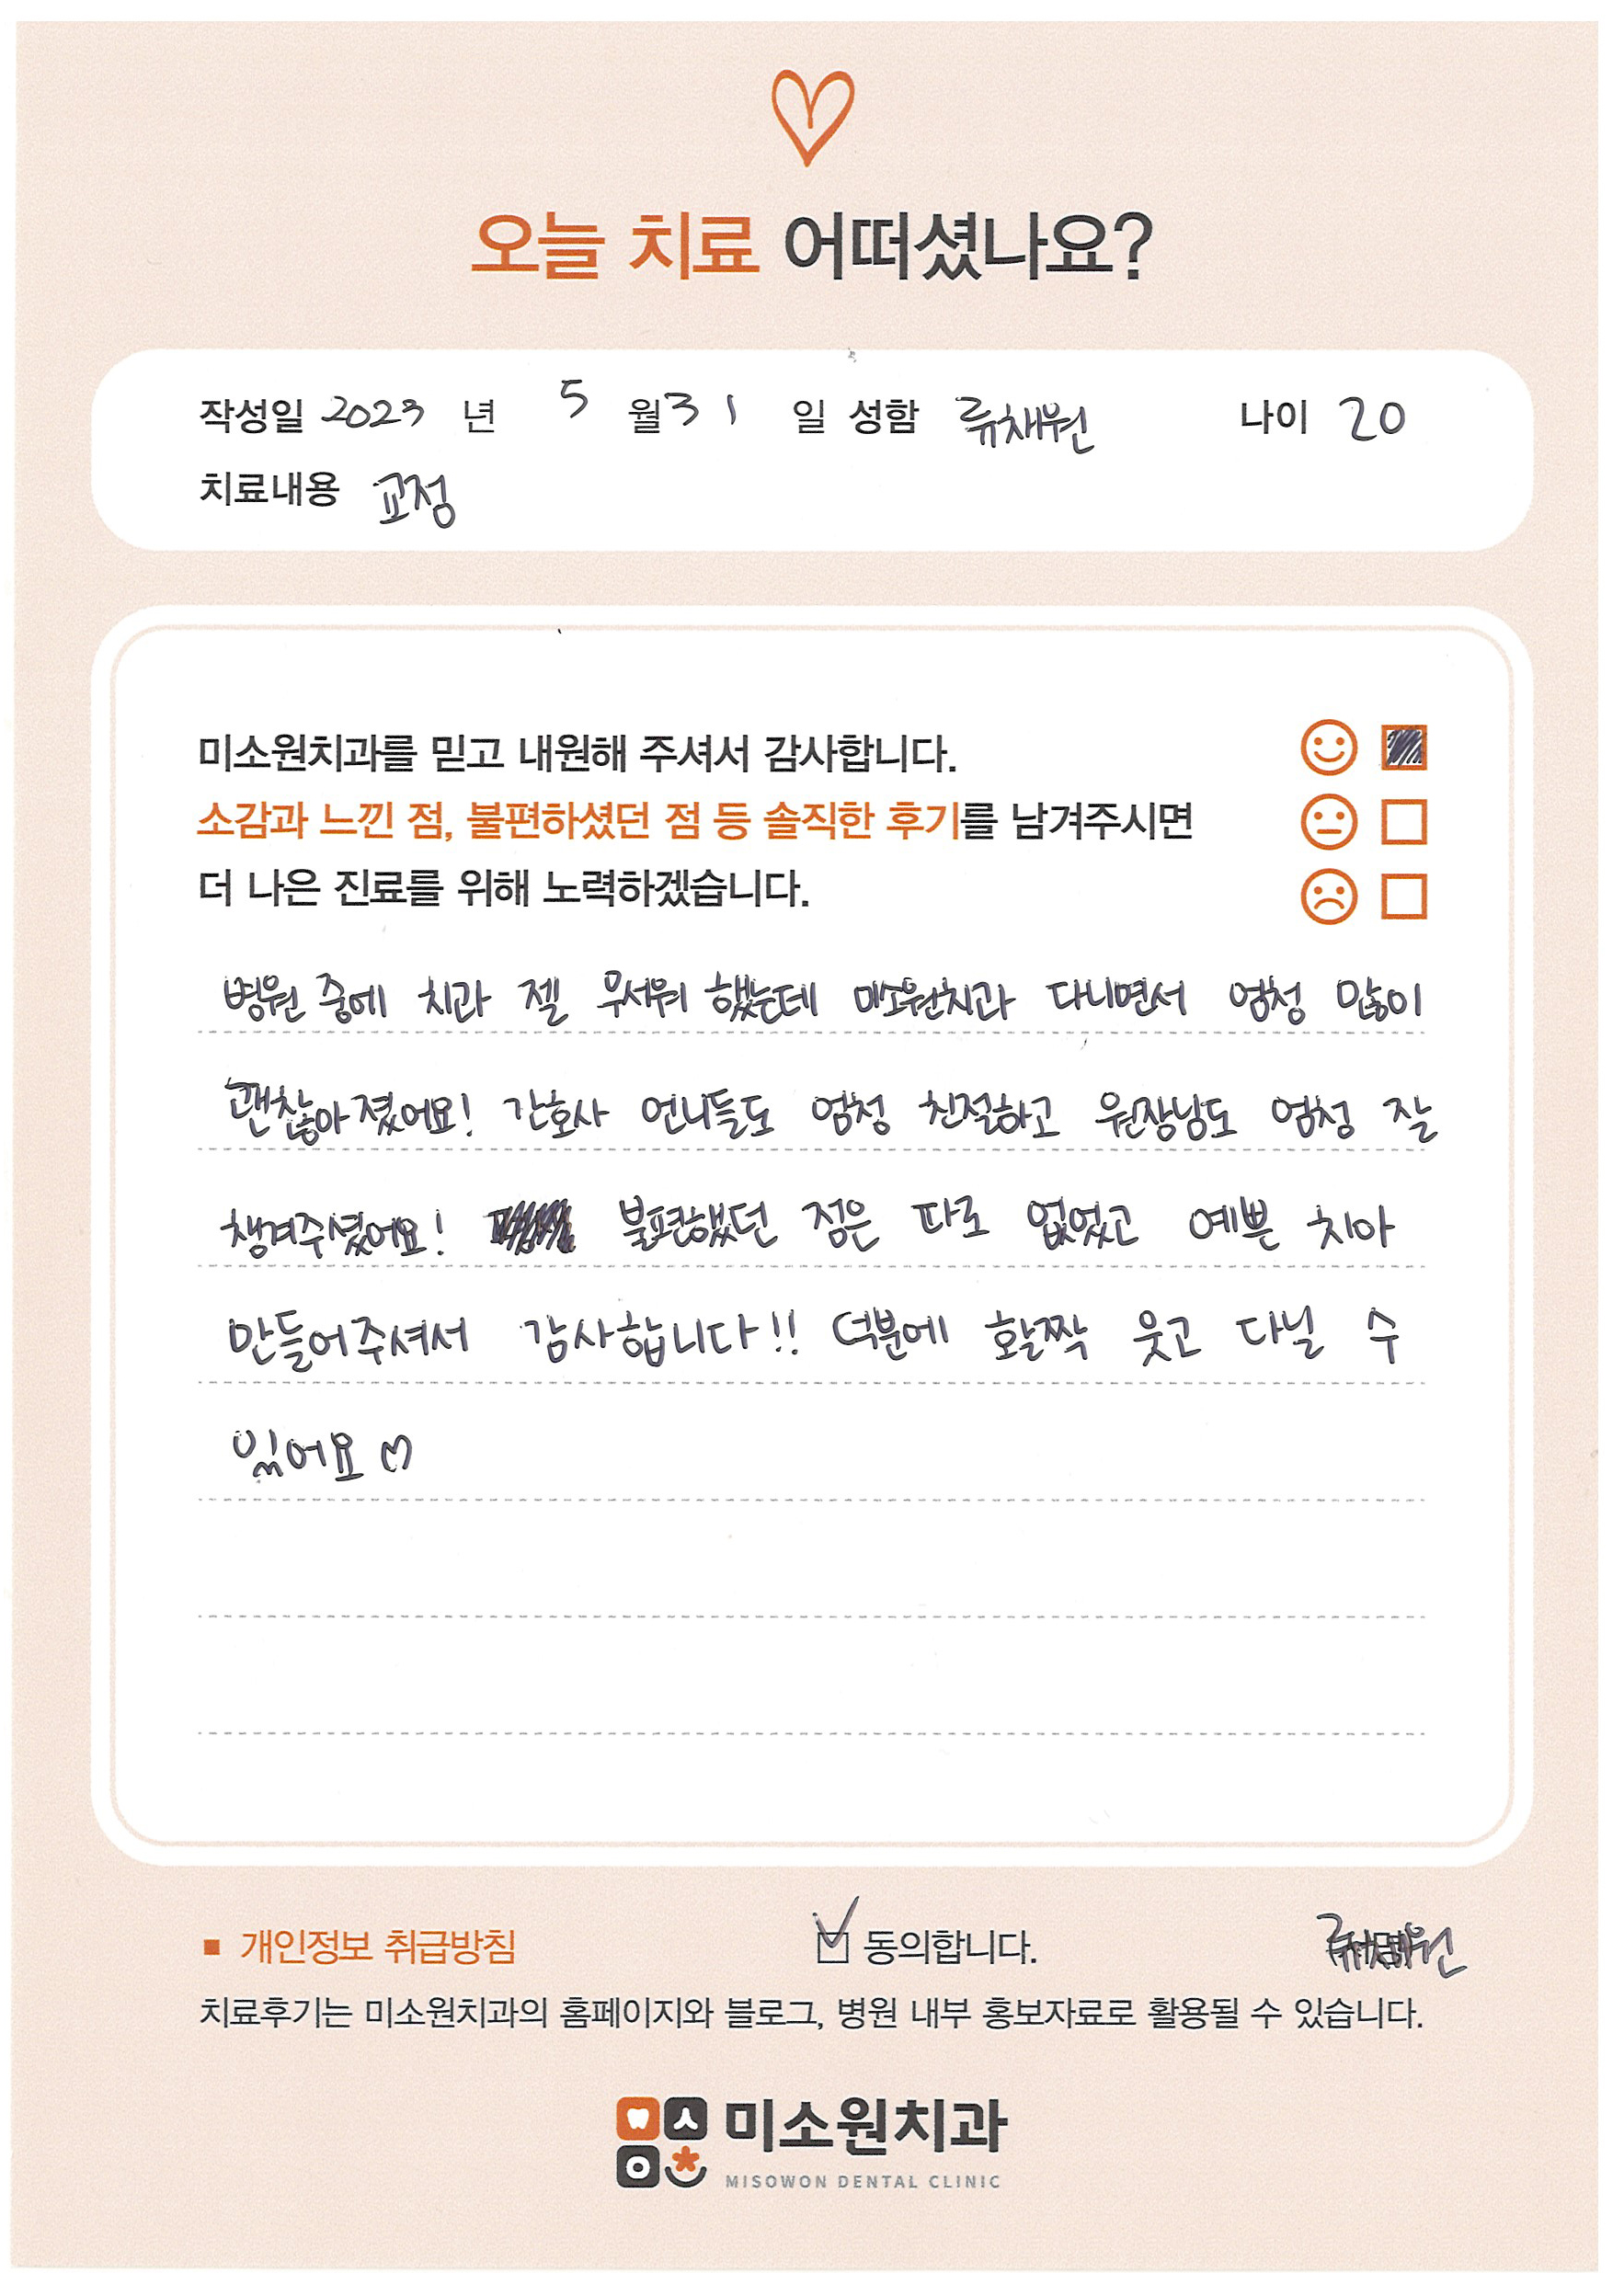 오늘 치료 어떠셨나요?
작성일 2023 년 5 월 31 일 성함 류채원 나이 20
치료내용 교정
미소원치과를 믿고 내원해 주셔서 감사합니다.
소감과 느낀 점, 불편하셨던 점 등 솔직한 후기를 남겨주시면
더 나은 진료를 위해 노력하겠습니다.
병원 중에 치과 젤 무서워 했는데 미소원치과 다니면서 엄청 많이
괜찮아졌어요! 간호사 언니들도 엄청 친절하고 원장님도 엄청 잘
챙겨주셨어요! 불편했던 점은 따로 없었고 예쁜 치아
만들어주셔서 감사합니다!! 덕분에 활짝 웃고 다닐 수
있어요 ♡
■ 개인정보 취급방침 동의합니다. 류채원
치료후기는 미소원치과의 홈페이지와 블로그, 병원 내부 홍보자료로 활용될 수 있습니다.
미소원치과
MISOWON DENTAL CLINIC